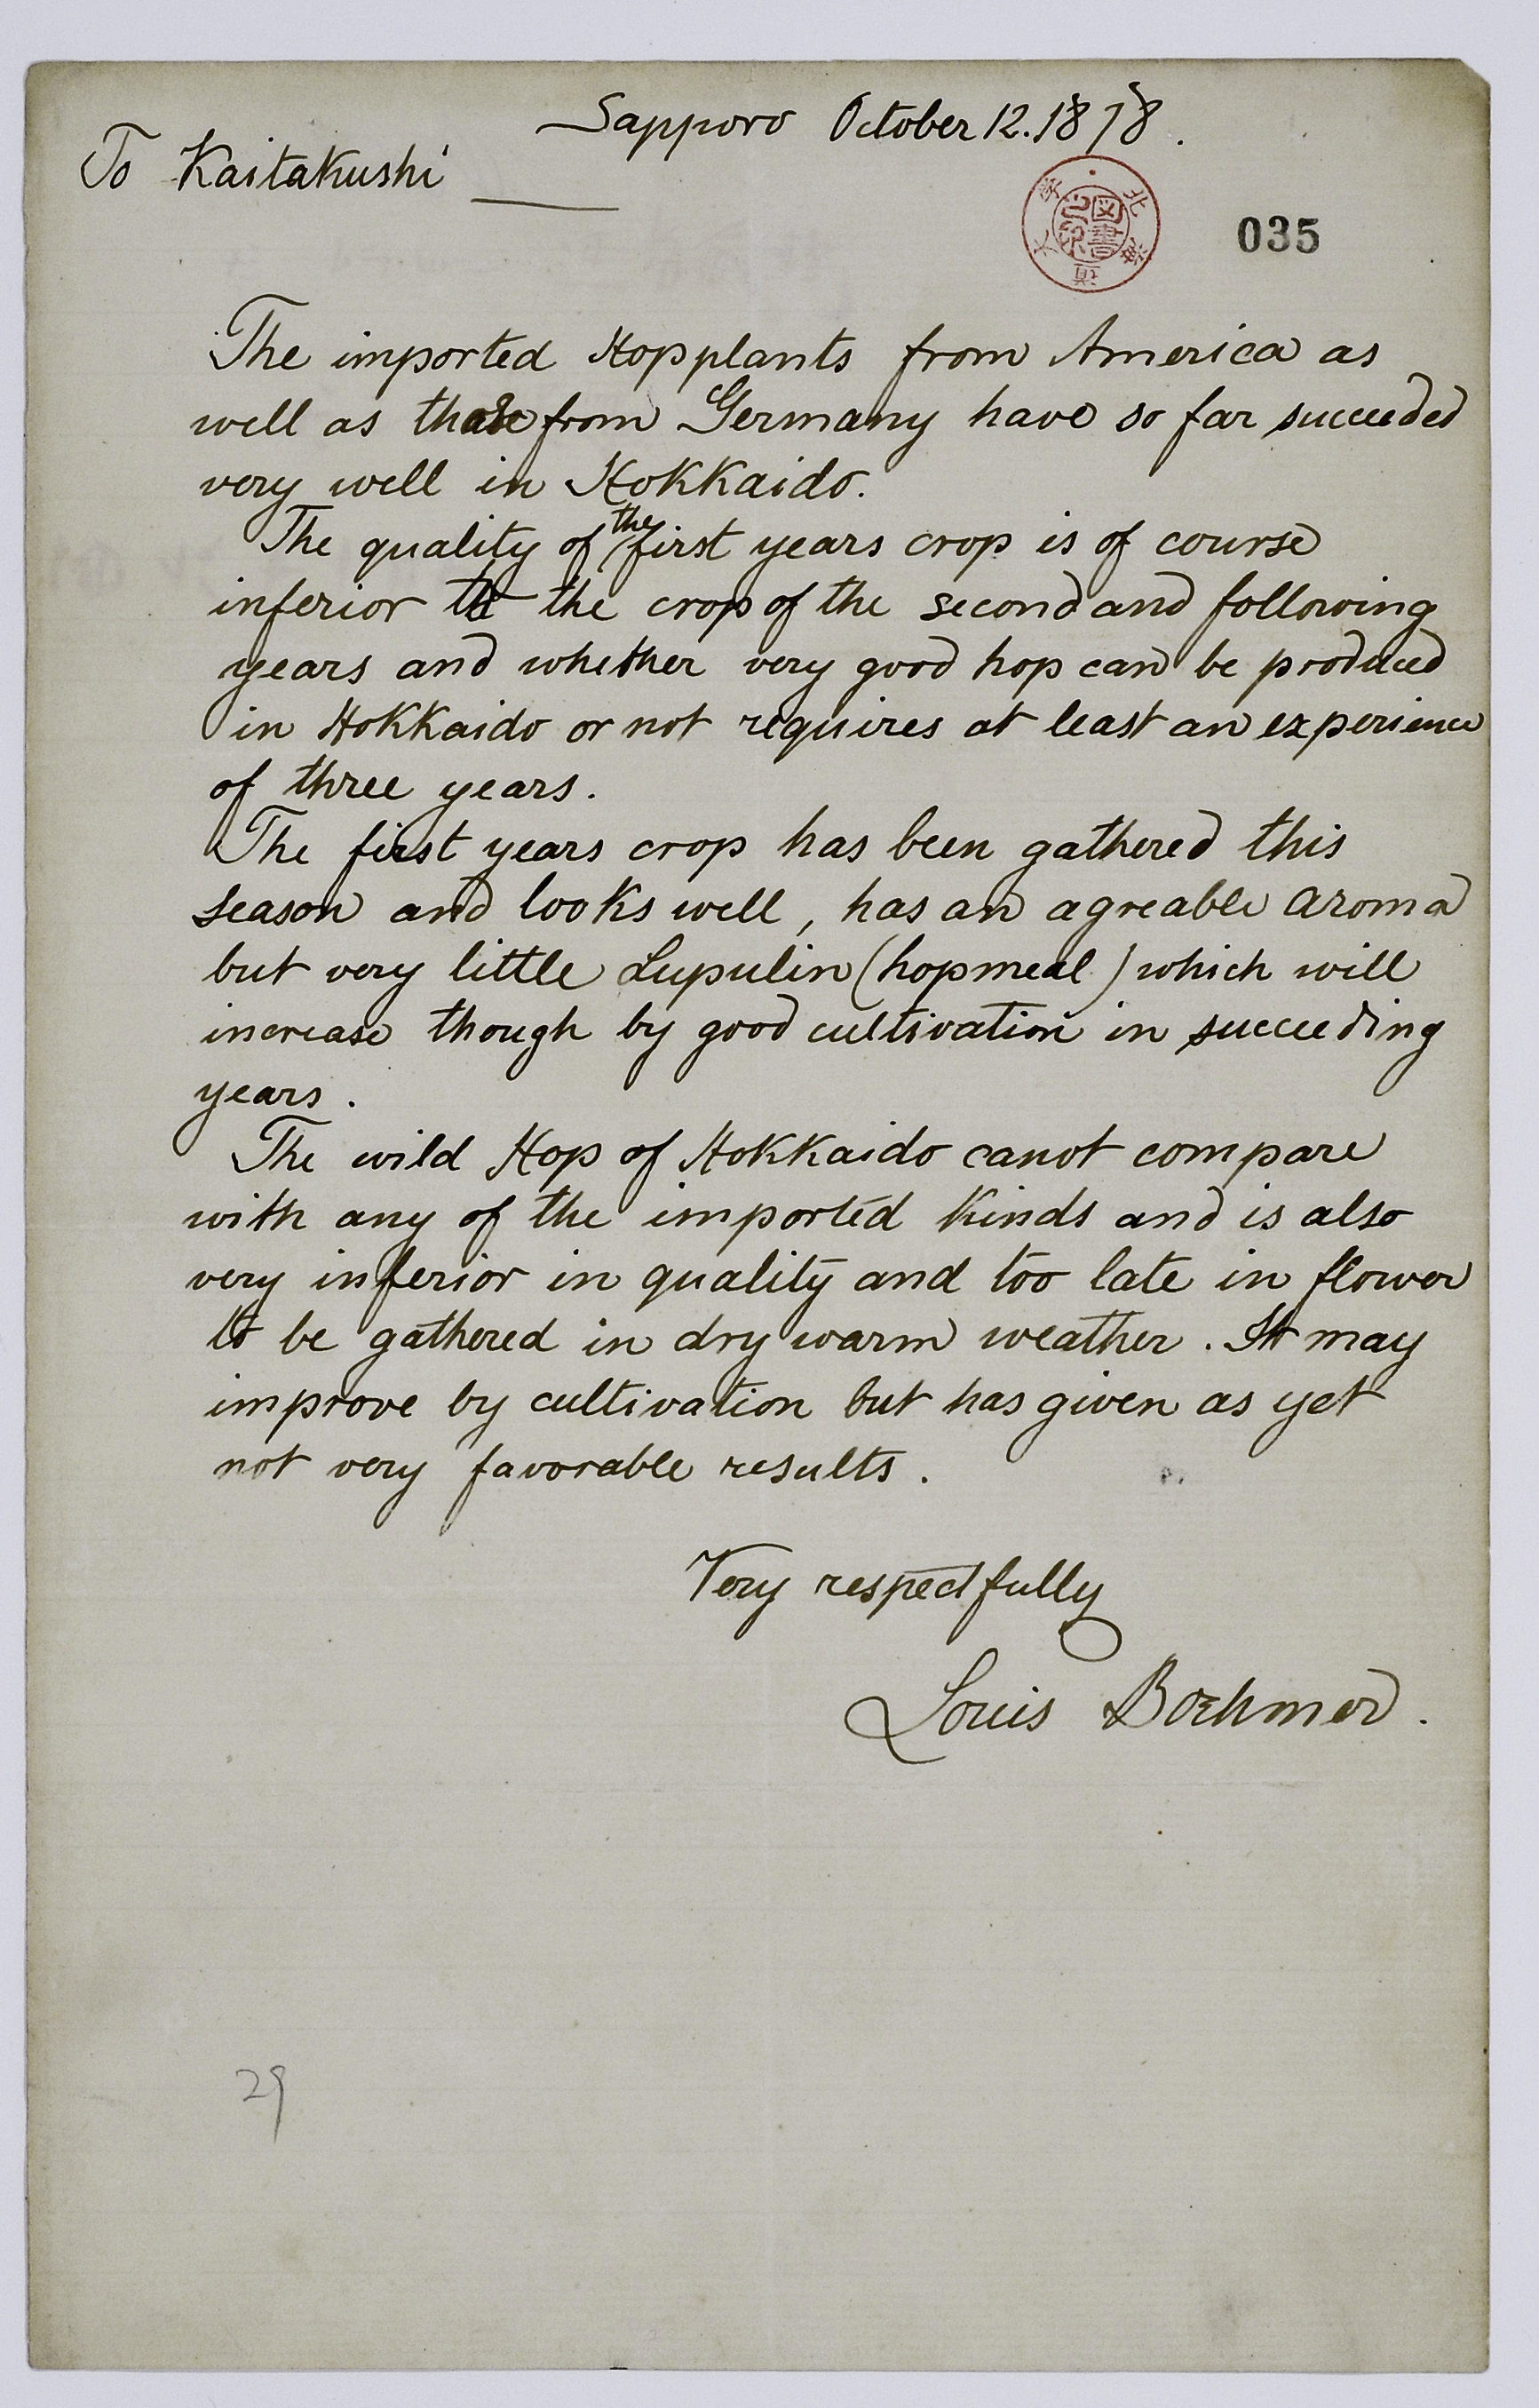 Sapporo October 12. 1878.
To Kaitakushi
北海道大学
図書之印
035
The imported Hopplants from America as
well as those from Germany have so far succeeded
very well in Hokkaido.
The quality of the first years crop is of course
inferior to the crop of the second and following
years and whether very good hop can be produced
in Hokkaido or not requires at least an experience
of three years.
The first years crop has been gathered this
season and looks well, has an agreable aroma
but very little Lupulin (hopmeal) which will
increase though by good cultivation in succeeding
years.
The wild Hop of Hokkaido canot compare
with any of the imported kinds and is also
very inferior in quality and too late in flower
to be gathered in dry warm weather. It may
improve by cultivation but has given as yet
not very favorable results.
Very respectfully
Louis Boehmer.
29